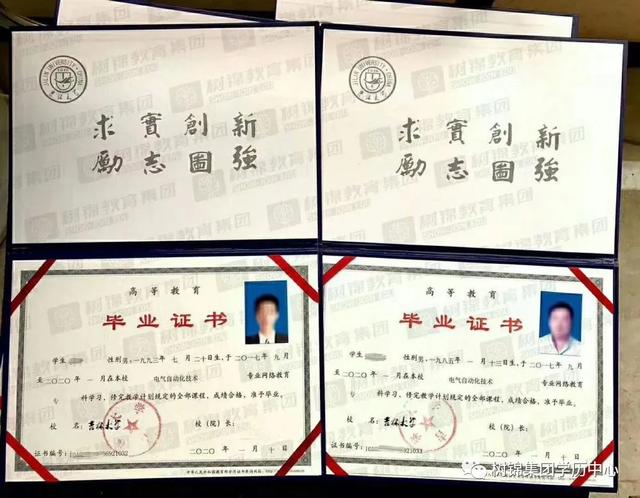 JILIN UNIVERSITY · CHINA
求實創新
勵志圖強
JILIN UNIVERSITY · CHINA
求實創新
勵志圖強
高等教育
毕业证书
学生 性别男,一九九三年 七 月 二十日生,于二〇一七年 九月
至二〇二〇年 一月在本校 电气自动化技术 专业网络教育
专科学习,修完教学计划规定的全部课程,成绩合格,准予毕业。
校 名:吉林大学 校(院)长:
证书编号: 二〇二〇年 一 月 十 日
高等教育
毕业证书
学生 性别男,一九八五年 一 月 十三日生,于二〇一七年 九月
至二〇二〇年 一月在本校 电气自动化技术 专业网络教育
专科学习,修完教学计划规定的全部课程,成绩合格,准予毕业。
校 名:吉林大学 校(院)长:
证书编号: 二〇二〇年 一 月 十 日
树锦教育集团
树锦集团学历中心